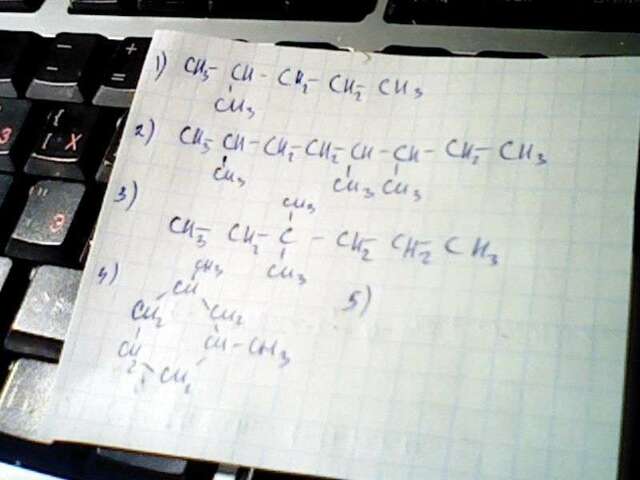 1) CH3- CH - CH2- CH2- CH3
CH3
2) CH3 CH - CH2 - CH2 - CH - CH - CH2 - CH3
CH3 CH3 CH3
3) CH3
CH3- CH2- C - CH2- CH2- CH3
CH3
4) CH3 5)
CH
CH2 CH2
CH2 CH-CH3
CH2